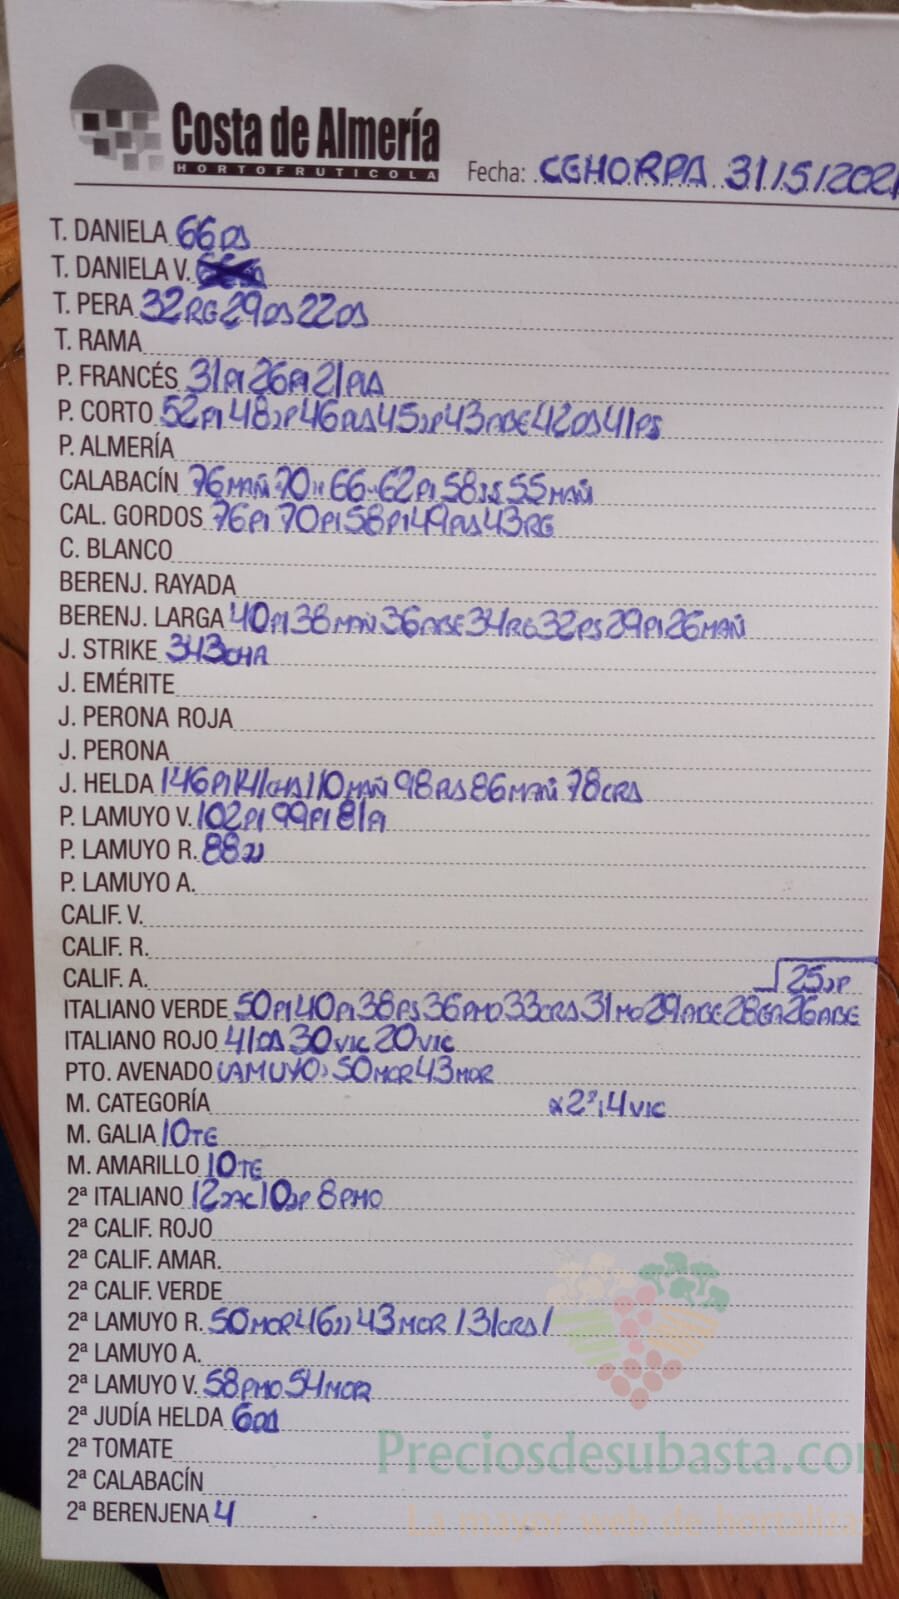 Costa de Almería
HORTOFRUTICOLA
Fecha: CEHORPA 31/5/2021
T. DANIELA 66DS
T. DANIELA V.
T. PERA 32RG 29DS 22DS
T. RAMA
P. FRANCÉS 31PI 26PI 21PLA
P. CORTO 52PI 48JP 46PLS 45JP 43ABE 42DS 41PS
P. ALMERÍA
CALABACÍN 76MAÑ 70 66 62PI 58 55MAÑ
CAL. GORDOS 76PI 70PI 58PI 49PLS 43RG
C. BLANCO
BERENJ. RAYADA
BERENJ. LARGA 40PI 38MAÑ 36ABE 34RG 32PS 29PI 26MAÑ
J. STRIKE 343CHA
J. EMÉRITE
J. PERONA ROJA
J. PERONA
J. HELDA 146PI 141CHA 110MAÑ 98 86MAÑ 78CRS
P. LAMUYO V. 102PI 99PI 81PI
P. LAMUYO R. 88
P. LAMUYO A.
CALIF. V.
CALIF. R.
CALIF. A. 25JP
ITALIANO VERDE 50PI 40PI 38PS 36PMO 33CRS 31MO 29ABE 28 26ABE
ITALIANO ROJO 41DS 30VIC 20VIC
PTO. AVENADO LAMUYO 50MOR 43MOR
M. CATEGORÍA 2ª 14VIC
M. GALIA 10TE
M. AMARILLO 10TE
2ª ITALIANO 12 10JP 8PMO
2ª CALIF. ROJO
2ª CALIF. AMAR.
2ª CALIF. VERDE
2ª LAMUYO R. 50MOR 46JJ 43MOR /31CRS/
2ª LAMUYO A.
2ª LAMUYO V. 58PMO 54MOR
2ª JUDÍA HELDA 6
2ª TOMATE
2ª CALABACÍN
2ª BERENJENA 4
Preciosdesubasta.com
La mayor web de hortalizas